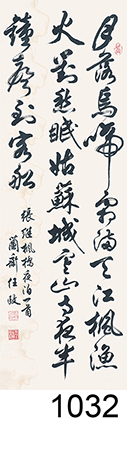 月落烏啼霜滿天江楓漁
火對愁眠姑蘇城寒山寺夜半
鐘聲到客船
張繼楓橋夜泊一首
蘭齋任政
1032